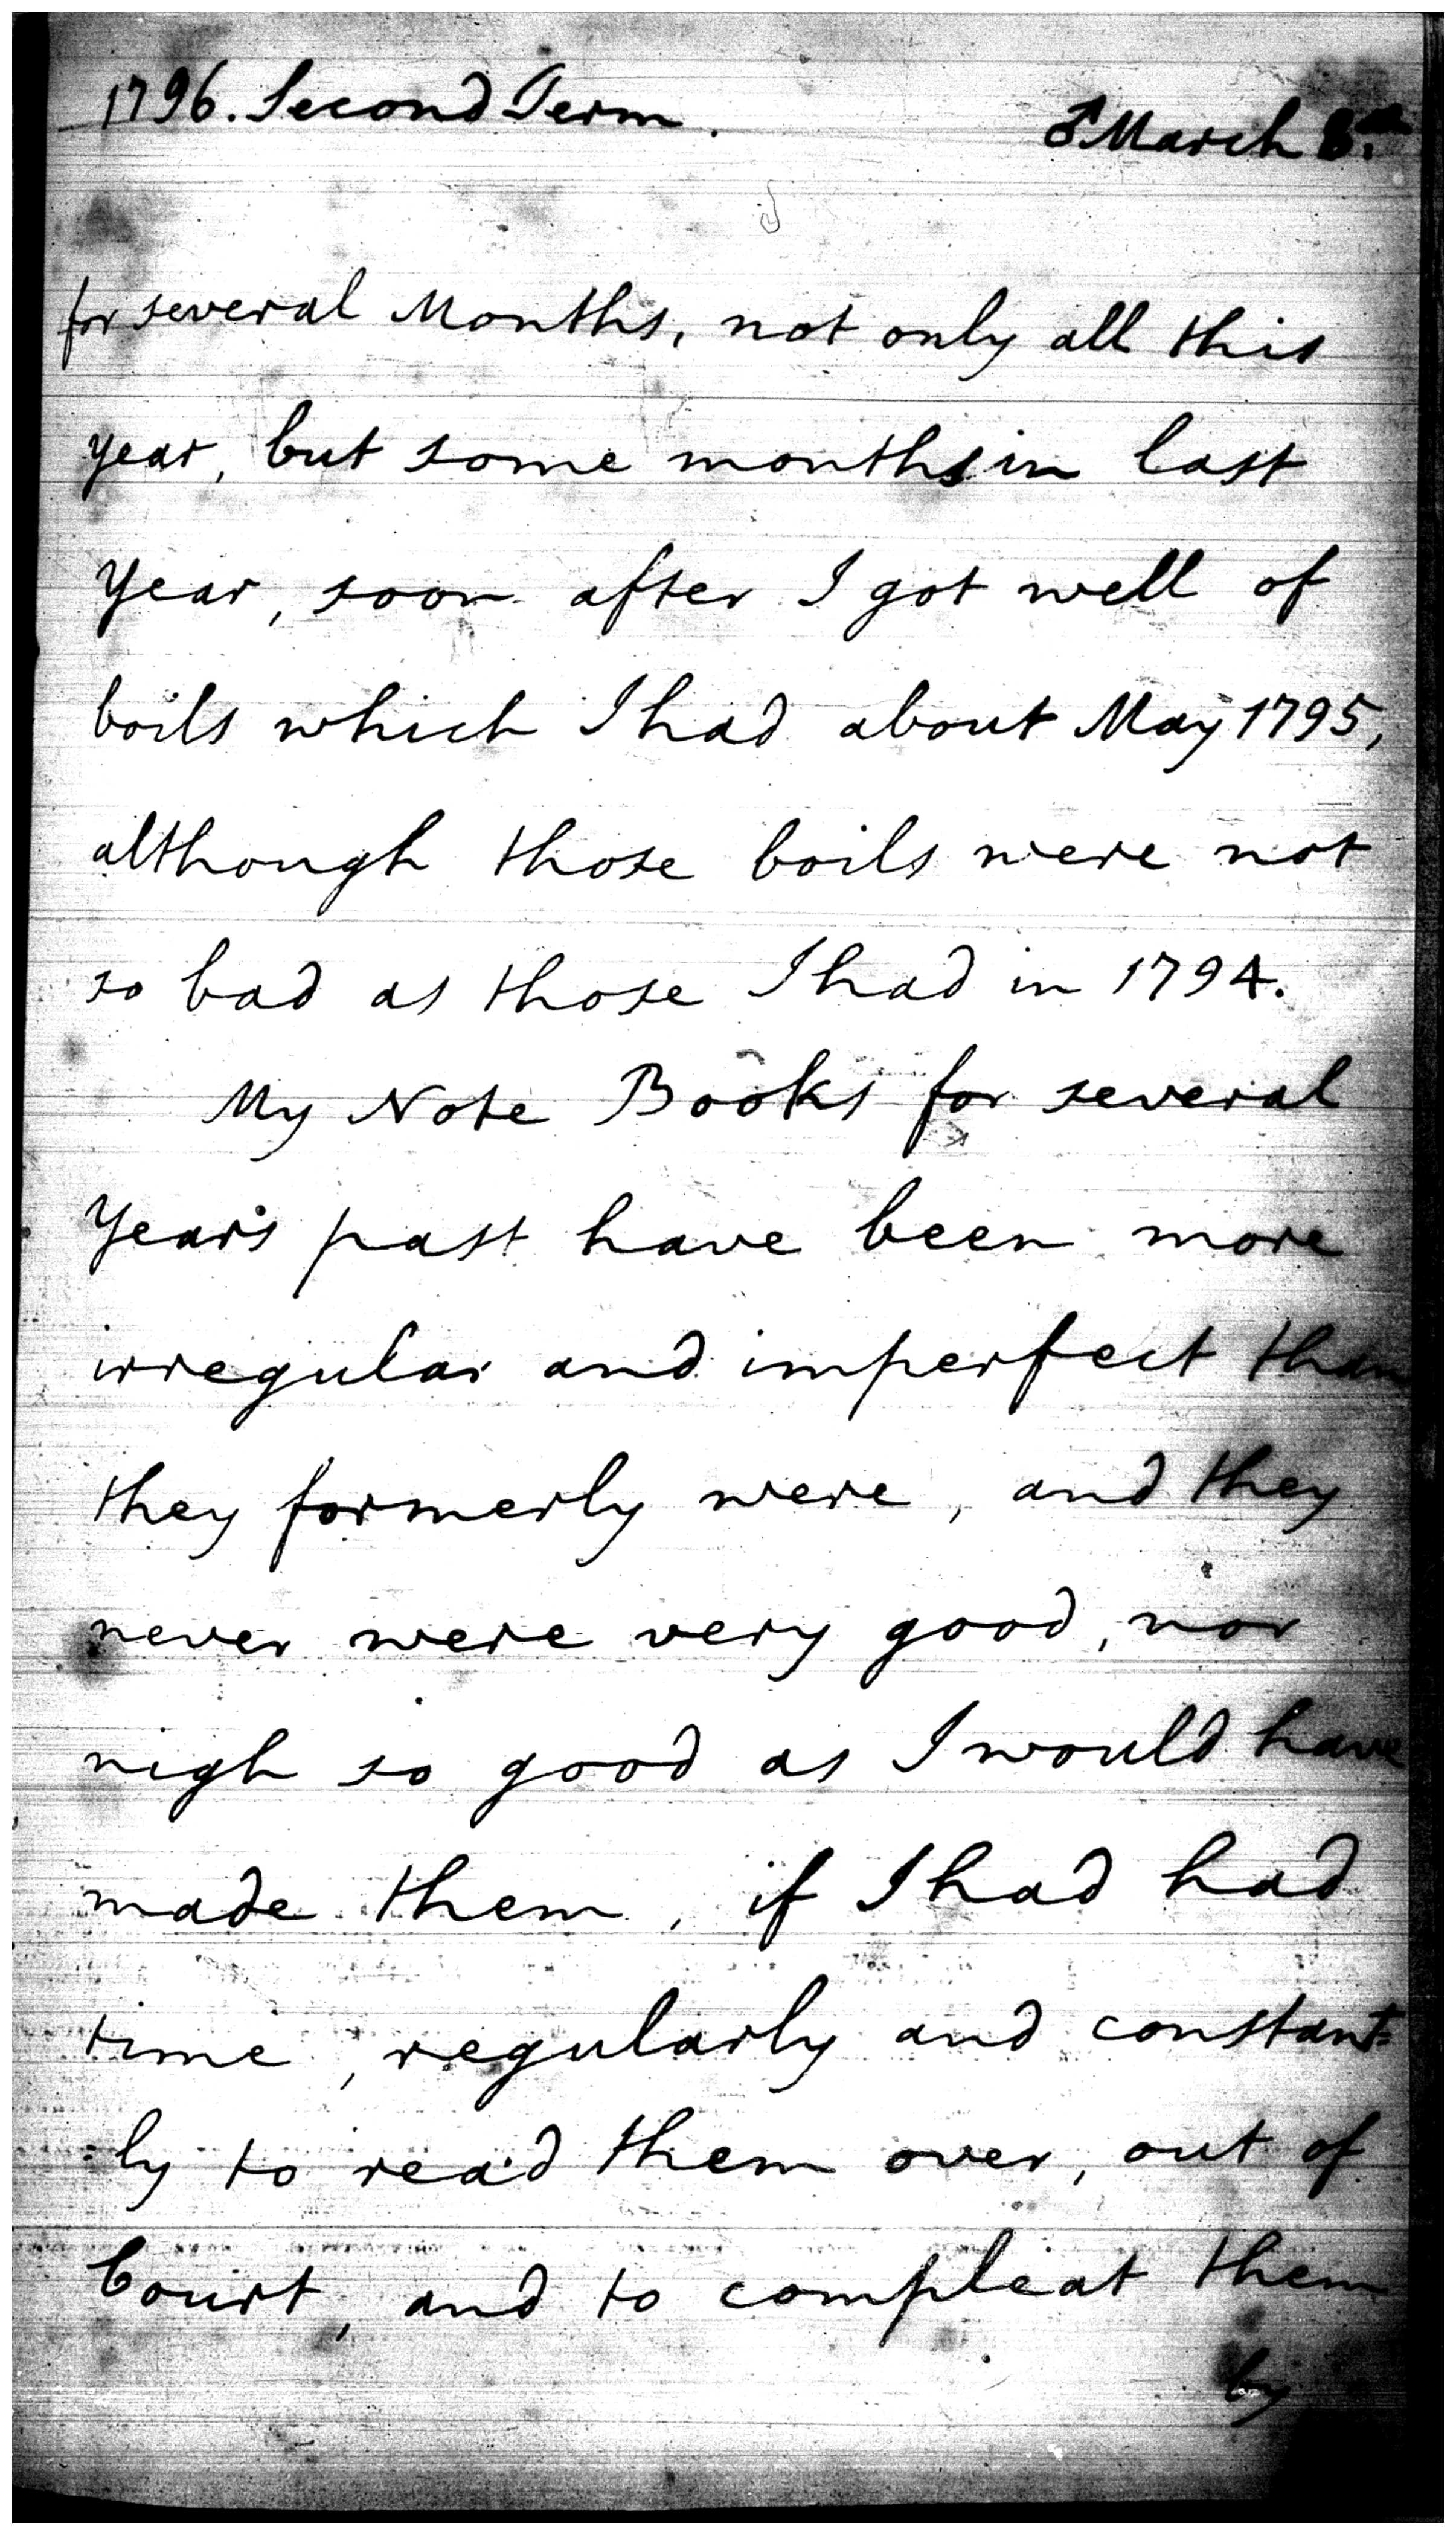 1796. Second Term.
March 8th.
for several Months, not only all this
year, but some months in last
Year, soon after I got well of
boils which I had about May 1795,
although those boils were not
so bad as those I had in 1794.
My Note Books for several
Years past have been more
irregular and imperfect than
they formerly were, and they
never were very good, nor
nigh so good as I would have
made them, if I had had
time, regularly and constant-
ly to read them over, out of
Court, and to compleat them
by